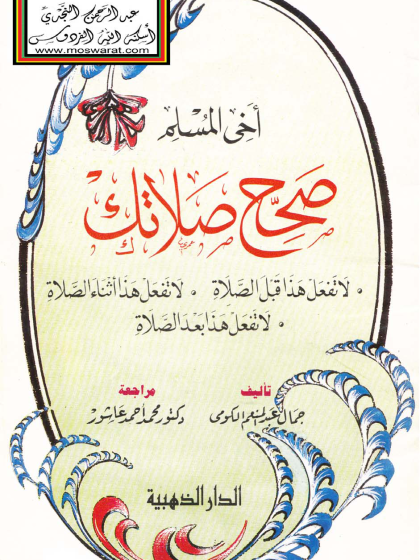 عبد الرحمن النجدي
أسكنه الله الفردوس
www.moswarat.com
أخى المسلم
صَحِّح صَلاتك
• لا تفعل هذا قبل الصَّلاة • لا تفعل هذا أثناء الصَّلاة
• لا تفعل هذا بعد الصَّلاة
تأليف مراجعة
جمال عبد المنعم الكومى دكتور محمد أحمد عاشور
الدار الذهبية